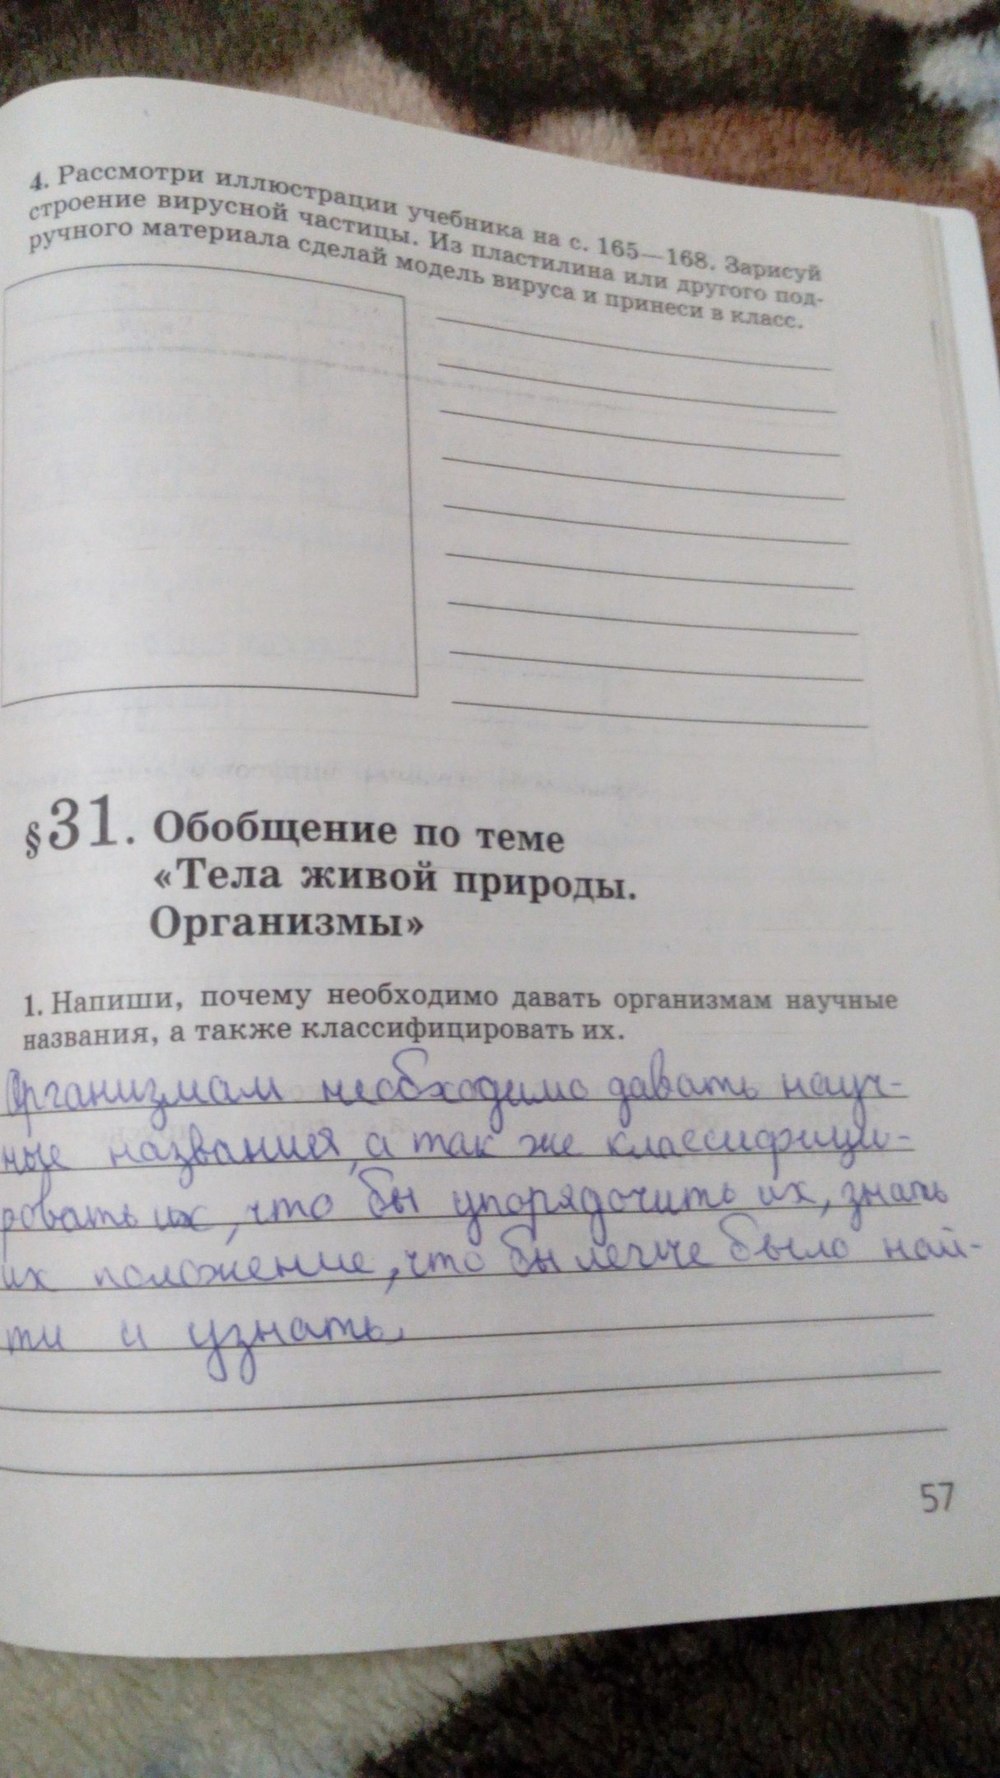 4. Рассмотри иллюстрации учебника на с. 165—168. Зарисуй
строение вирусной частицы. Из пластилина или другого под-
ручного материала сделай модель вируса и принеси в класс.
§31. Обобщение по теме
«Тела живой природы.
Организмы»
1. Напиши, почему необходимо давать организмам научные
названия, а также классифицировать их.
Организмам необходимо давать науч-
ные названия, а так же классифици-
ровать их, что бы упорядочить их, знать
их положение, что бы легче было най-
ти и узнать.
57